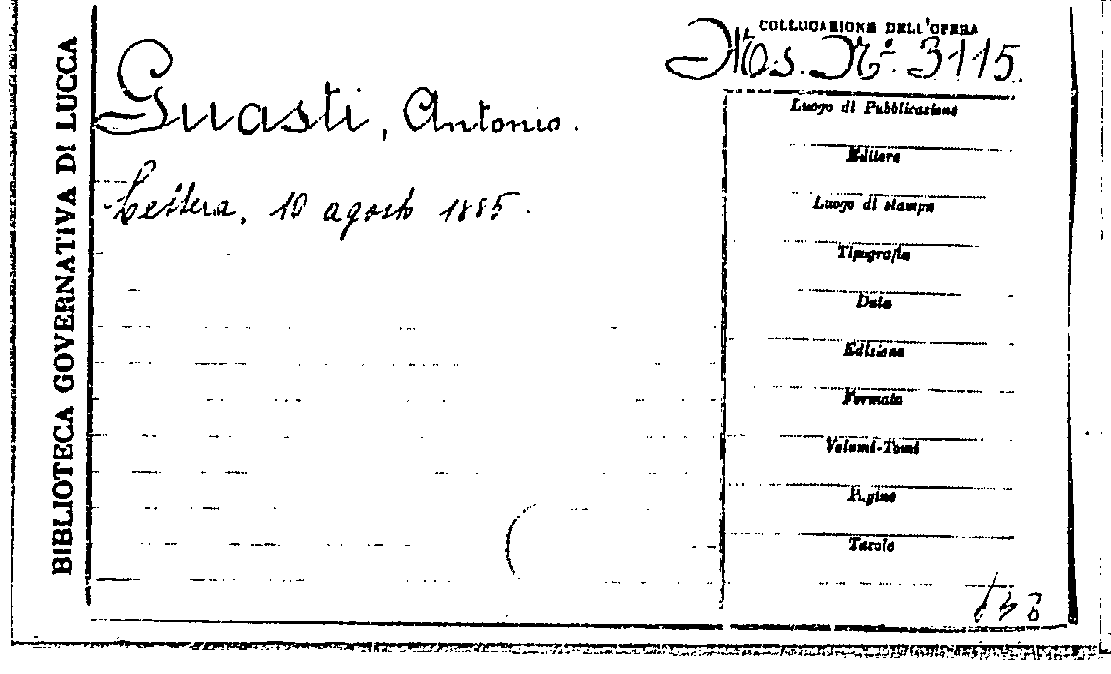 BIBLIOTECA GOVERNATIVA DI LUCCA
COLLOCAZIONE DELL'OPERA
Mos. Nº. 3115.
Guasti, Antonio.
Lettera, 10 agosto 1885.
Luogo di Pubblicazione
Editore
Luogo di stampa
Tipografia
Data
Edizione
Formato
Volumi-Tomi
Pagine
Tavole